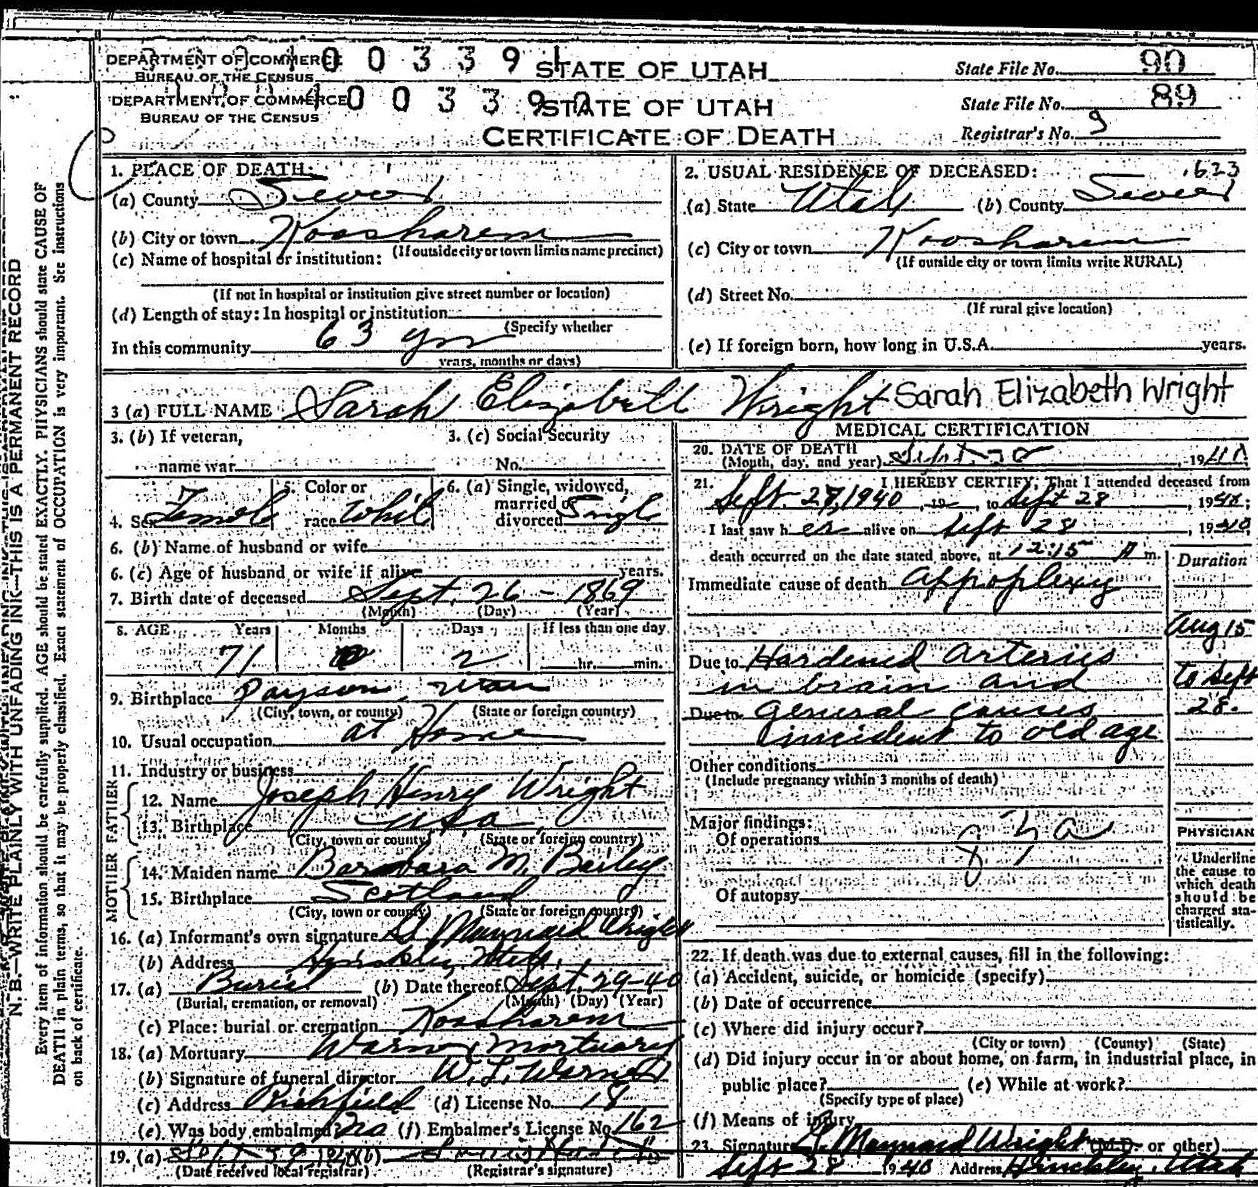 DEPARTMENT OF COMMERCE 0 0 3 3 9 1 STATE OF UTAH State File No. 90
BUREAU OF THE CENSUS
DEPARTMENT OF COMMERCE 0 0 3 3 9 STATE OF UTAH State File No. 89
BUREAU OF THE CENSUS
CERTIFICATE OF DEATH Registrar's No. 9
N. B.—WRITE PLAINLY WITH UNFADING INK—THIS IS A PERMANENT RECORD
Every item of information should be carefully supplied. AGE should be stated EXACTLY. PHYSICIANS should state CAUSE OF
DEATH in plain terms, so that it may be properly classified. Exact statement of OCCUPATION is very important. See instructions
on back of certificate.
1. PLACE OF DEATH:
(a) County Sevier
(b) City or town Koosharem
(If outside city or town limits name precinct)
(c) Name of hospital or institution:
(If not in hospital or institution give street number or location)
(d) Length of stay: In hospital or institution
(Specify whether
In this community 63 yrs
years, months or days)
2. USUAL RESIDENCE OF DECEASED: 623
(a) State Utah (b) County Sevier
(c) City or town Koosharem
(If outside city or town limits write RURAL)
(d) Street No.
(If rural give location)
(e) If foreign born, how long in U.S.A. years.
3 (a) FULL NAME Sarah Elizabeth Wright Sarah Elizabeth Wright
3. (b) If veteran, 3. (c) Social Security
name war No.
4. Sex Female 5. Color or race White 6. (a) Single, widowed, married or divorced Single
6. (b) Name of husband or wife
6. (c) Age of husband or wife if alive years.
7. Birth date of deceased Sept. 26 - 1869
(Month) (Day) (Year)
8. AGE Years Months Days If less than one day
71 0 2 hr. min.
9. Birthplace Payson, Utah
(City, town, or county) (State or foreign country)
10. Usual occupation at Home
11. Industry or business
FATHER
12. Name Joseph Henry Wright
13. Birthplace USA
(City, town or county) (State or foreign country)
MOTHER
14. Maiden name Barbara M. Bailey
15. Birthplace Scotland
(City, town or county) (State or foreign country)
16. (a) Informant's own signature Maynard Wright
(b) Address Hinckley, Utah
17. (a) Burial (b) Date thereof Sept. 29-40
(Burial, cremation, or removal) (Month) (Day) (Year)
(c) Place: burial or cremation Koosharem
18. (a) Mortuary Warnock Mortuary
(b) Signature of funeral director W. L. Warnock
(c) Address Richfield (d) License No. 18
(e) Was body embalmed? no (f) Embalmer's License No. 162
19. (a) Sept (b)
(Date received local registrar) (Registrar's signature)
MEDICAL CERTIFICATION
20. DATE OF DEATH
(Month, day, and year) Sept. 19
21. I HEREBY CERTIFY, That I attended deceased from
Sept. 27, 1940 19 to Sept 28, 1940.
I last saw her alive on Sept 28 1940,
death occurred on the date stated above, at 12:15 A m.
Duration
Immediate cause of death Appoplexy
Aug 15
to Sept
28.
Due to Hardened arteries
in brain and
Due to general causes
incident to old age
Other conditions
(Include pregnancy within 3 months of death)
Major findings:
Of operations
Of autopsy
PHYSICIAN
Underline
the cause to
which death
should be
charged sta-
tistically.
22. If death was due to external causes, fill in the following:
(a) Accident, suicide, or homicide (specify)
(b) Date of occurrence
(c) Where did injury occur?
(City or town) (County) (State)
(d) Did injury occur in or about home, on farm, in industrial place, in
public place? (e) While at work?
(Specify type of place)
(f) Means of injury
23. Signature Maynard Wright (M.D. or other)
Sept 28 1940 Address Hinckley, Utah